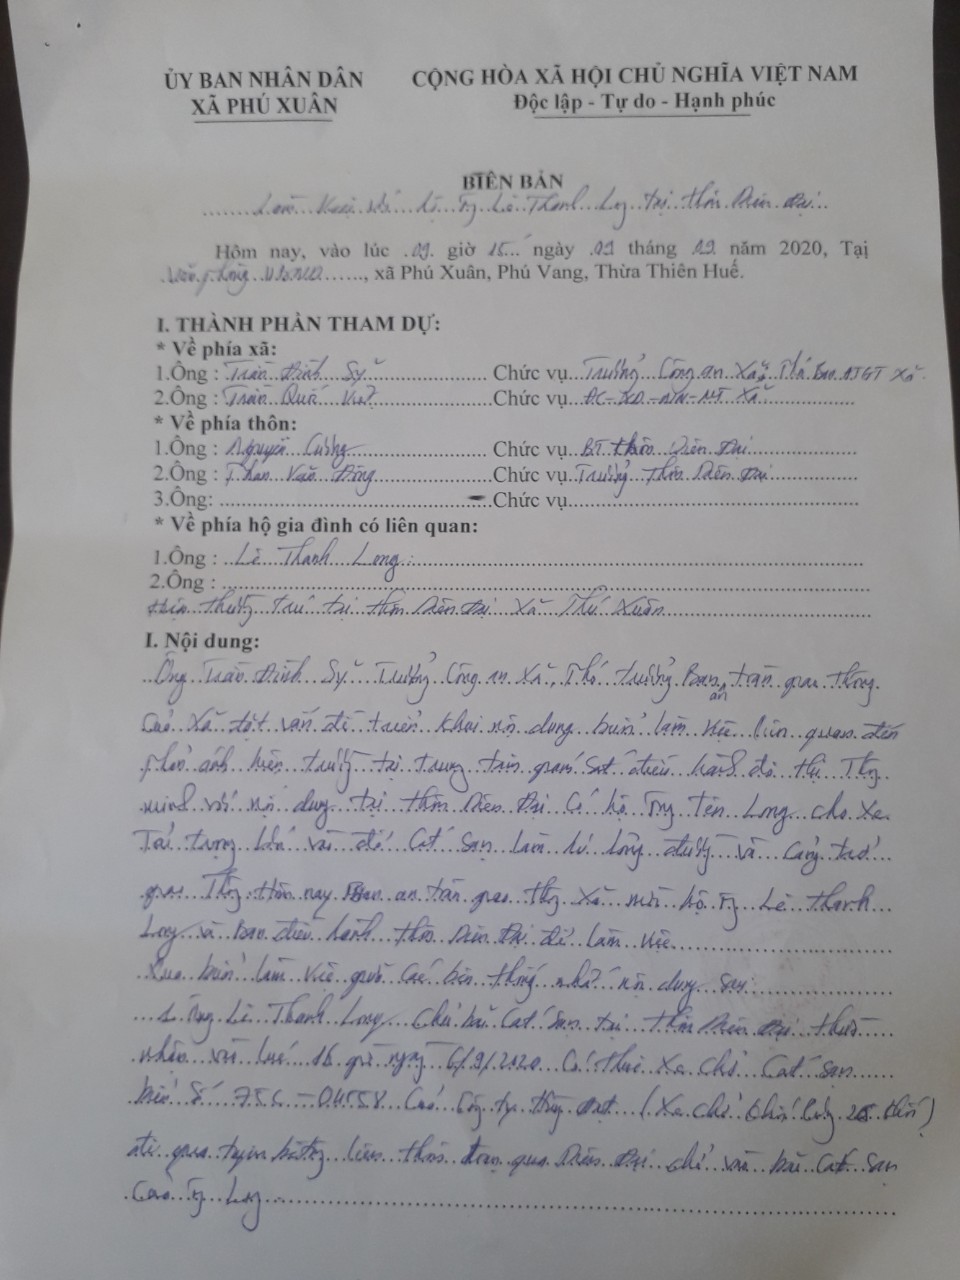 ỦY BAN NHÂN DÂN
XÃ PHÚ XUÂN
CỘNG HÒA XÃ HỘI CHỦ NGHĨA VIỆT NAM
Độc lập - Tự do - Hạnh phúc
BIÊN BẢN
Làm việc với hộ ông Lê Thanh Long tại thôn Diên Đại
Hôm nay, vào lúc 09 giờ 15 ngày 09 tháng 09 năm 2020, Tại
Văn phòng UBND, xã Phú Xuân, Phú Vang, Thừa Thiên Huế.
I. THÀNH PHẦN THAM DỰ:
* Về phía xã:
1.Ông : Trần Đình Sỹ Chức vụ Trưởng Công an Xã, Phó Ban ATGT Xã
2.Ông : Trần Quốc Chức vụ ĐC-XD-NN-MT Xã
* Về phía thôn:
1.Ông : Nguyễn Cường Chức vụ BT thôn Diên Đại
2.Ông : Phan Văn Chức vụ Trưởng thôn Diên Đại
3.Ông: Chức vụ
* Về phía hộ gia đình có liên quan:
1.Ông : Lê Thanh Long
2.Ông :
Hiện thường trú tại thôn Diên Đại Xã Phú Xuân
I. Nội dung:
Ông Trần Đình Sỹ Trưởng Công an Xã, Phó trưởng Ban an toàn giao thông
của Xã đặt vấn đề triển khai nội dung buổi làm việc liên quan đến
phản ánh hiện trường tại trung tâm giám sát điều hành đô thị Thông
minh với nội dung tại thôn Diên Đại có hộ Ông Tên Long cho xe
Tải trọng lớn vào đổ Cát Sạn làm hư hỏng đường và cản trở
giao Thông. Hôm nay Ban an toàn giao thông Xã mời hộ ông Lê Thanh
Long và Ban điều hành thôn Diên Đại để làm việc
Qua buổi làm việc giữa các bên thống nhất nội dung sau:
1. Ông Lê Thanh Long Chủ bãi Cát Sạn tại thôn Diên Đại thừa
nhận vào lúc 16 giờ ngày 6/9/2020 có thuê Xe chở Cát sạn
biển Số 75C - 04558 của Công ty Đạt (Xe chở khối lượng khối)
đi qua tuyến đường liên thôn đoạn qua Diên Đại chở vào bãi Cát Sạn
của ông Long